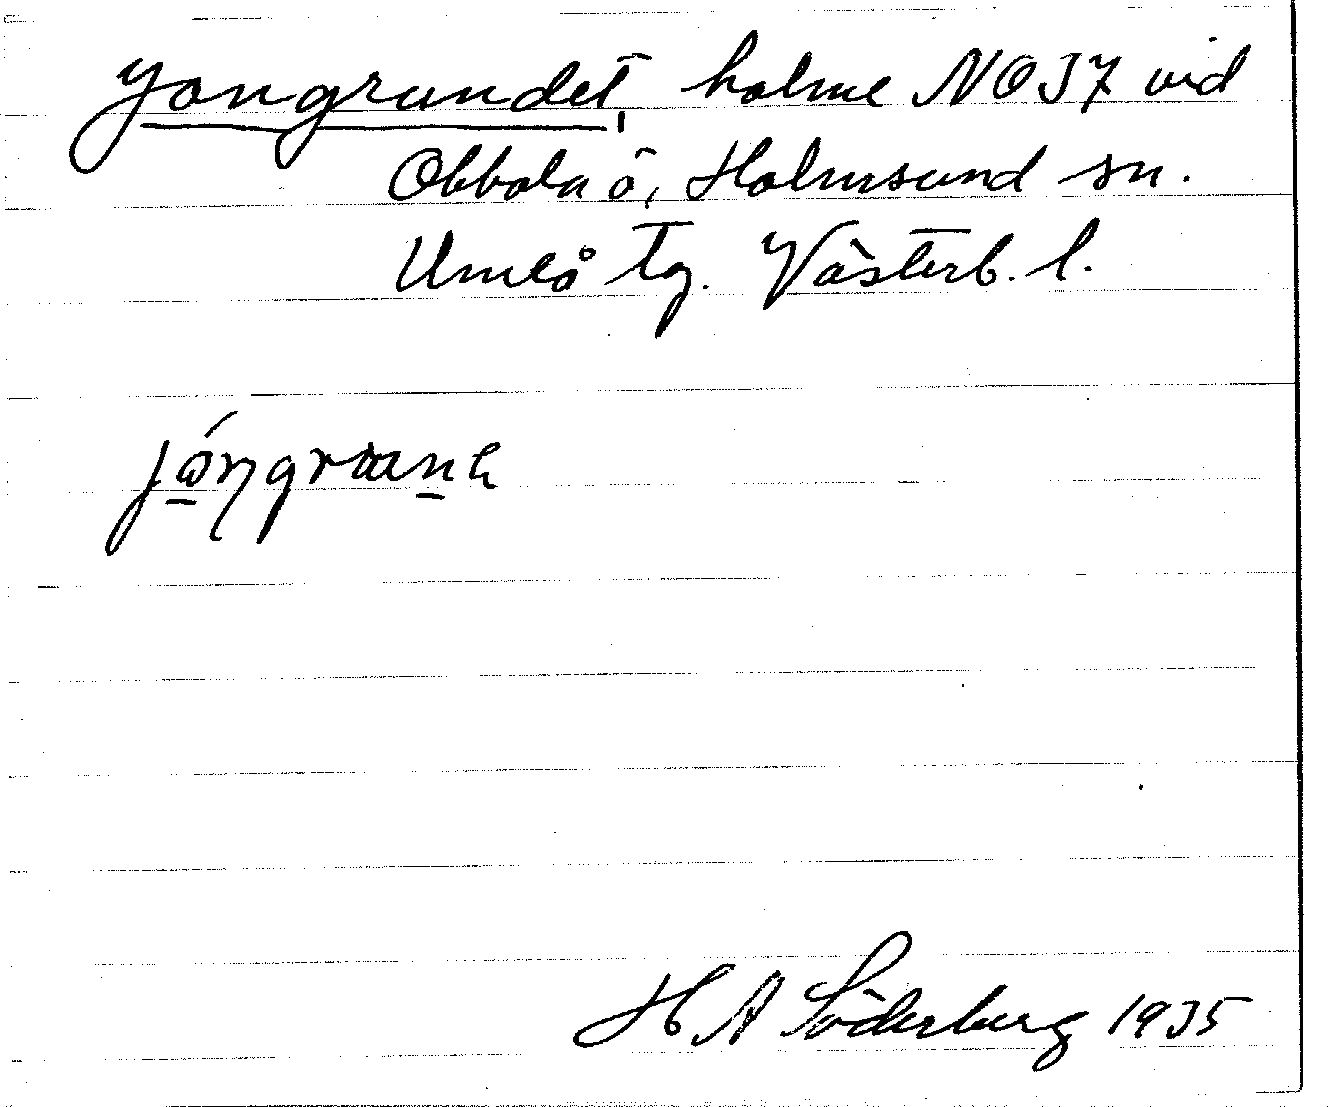 Jongrundet, holme NO37 vid
Obbola ö, Holmsund sn.
Umeå tg. Västerb. l.
H A Söderberg 1935